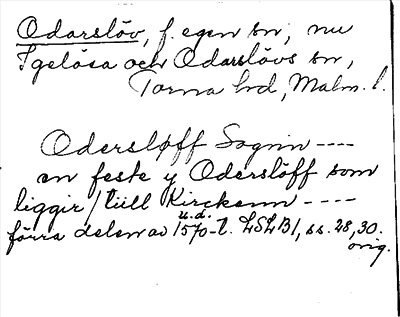 Odarslöv, f. egen sn, nu
Igelösa och Odarslövs sn,
Torna hd, Malm. l.
Odersløff Sognn ----
en feste y Oderslöff som
liggir / till Kirckenn ----
u. d.
förra delen av 1570-t. LSLB1, ss. 28, 30.
orig.